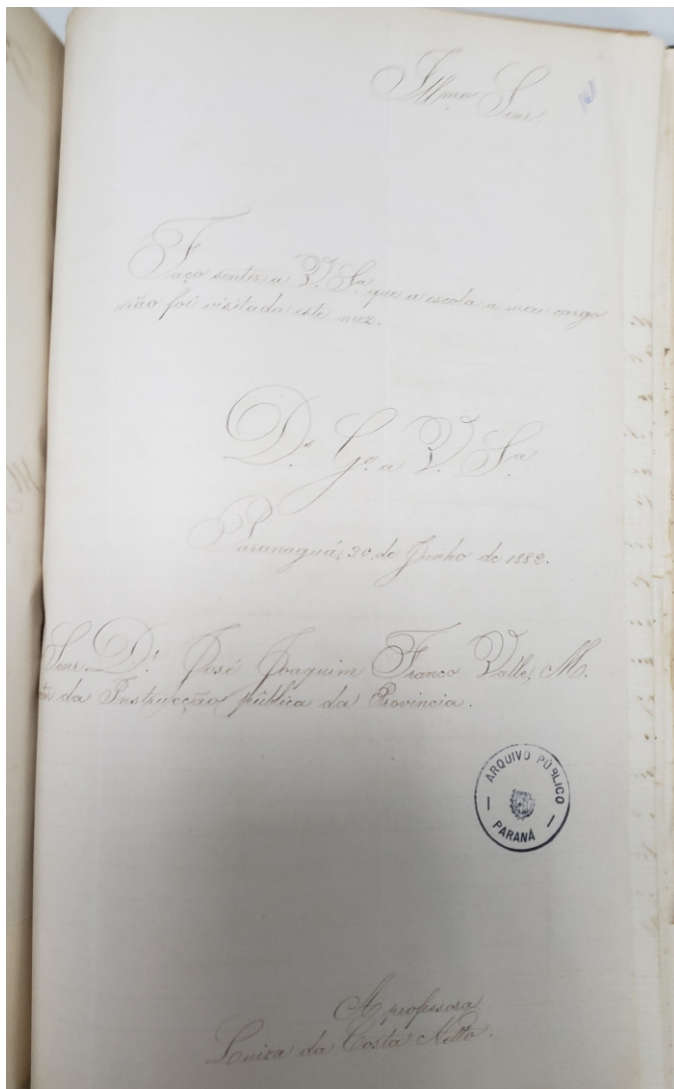 Illmo Senr.
Faço sentir a V. Sª que a escola a meu cargo
não foi visitada este mez.
Ds. Gde a V. Sª
Paranaguá, 30 de Junho de 1882.
Senr. Dr. José Joaquim Franco Valle, M.
da Instrucção publica da Provincia.
ARQUIVO PÚBLICO
PARANÁ
A professora
Luiza da Costa Netto.